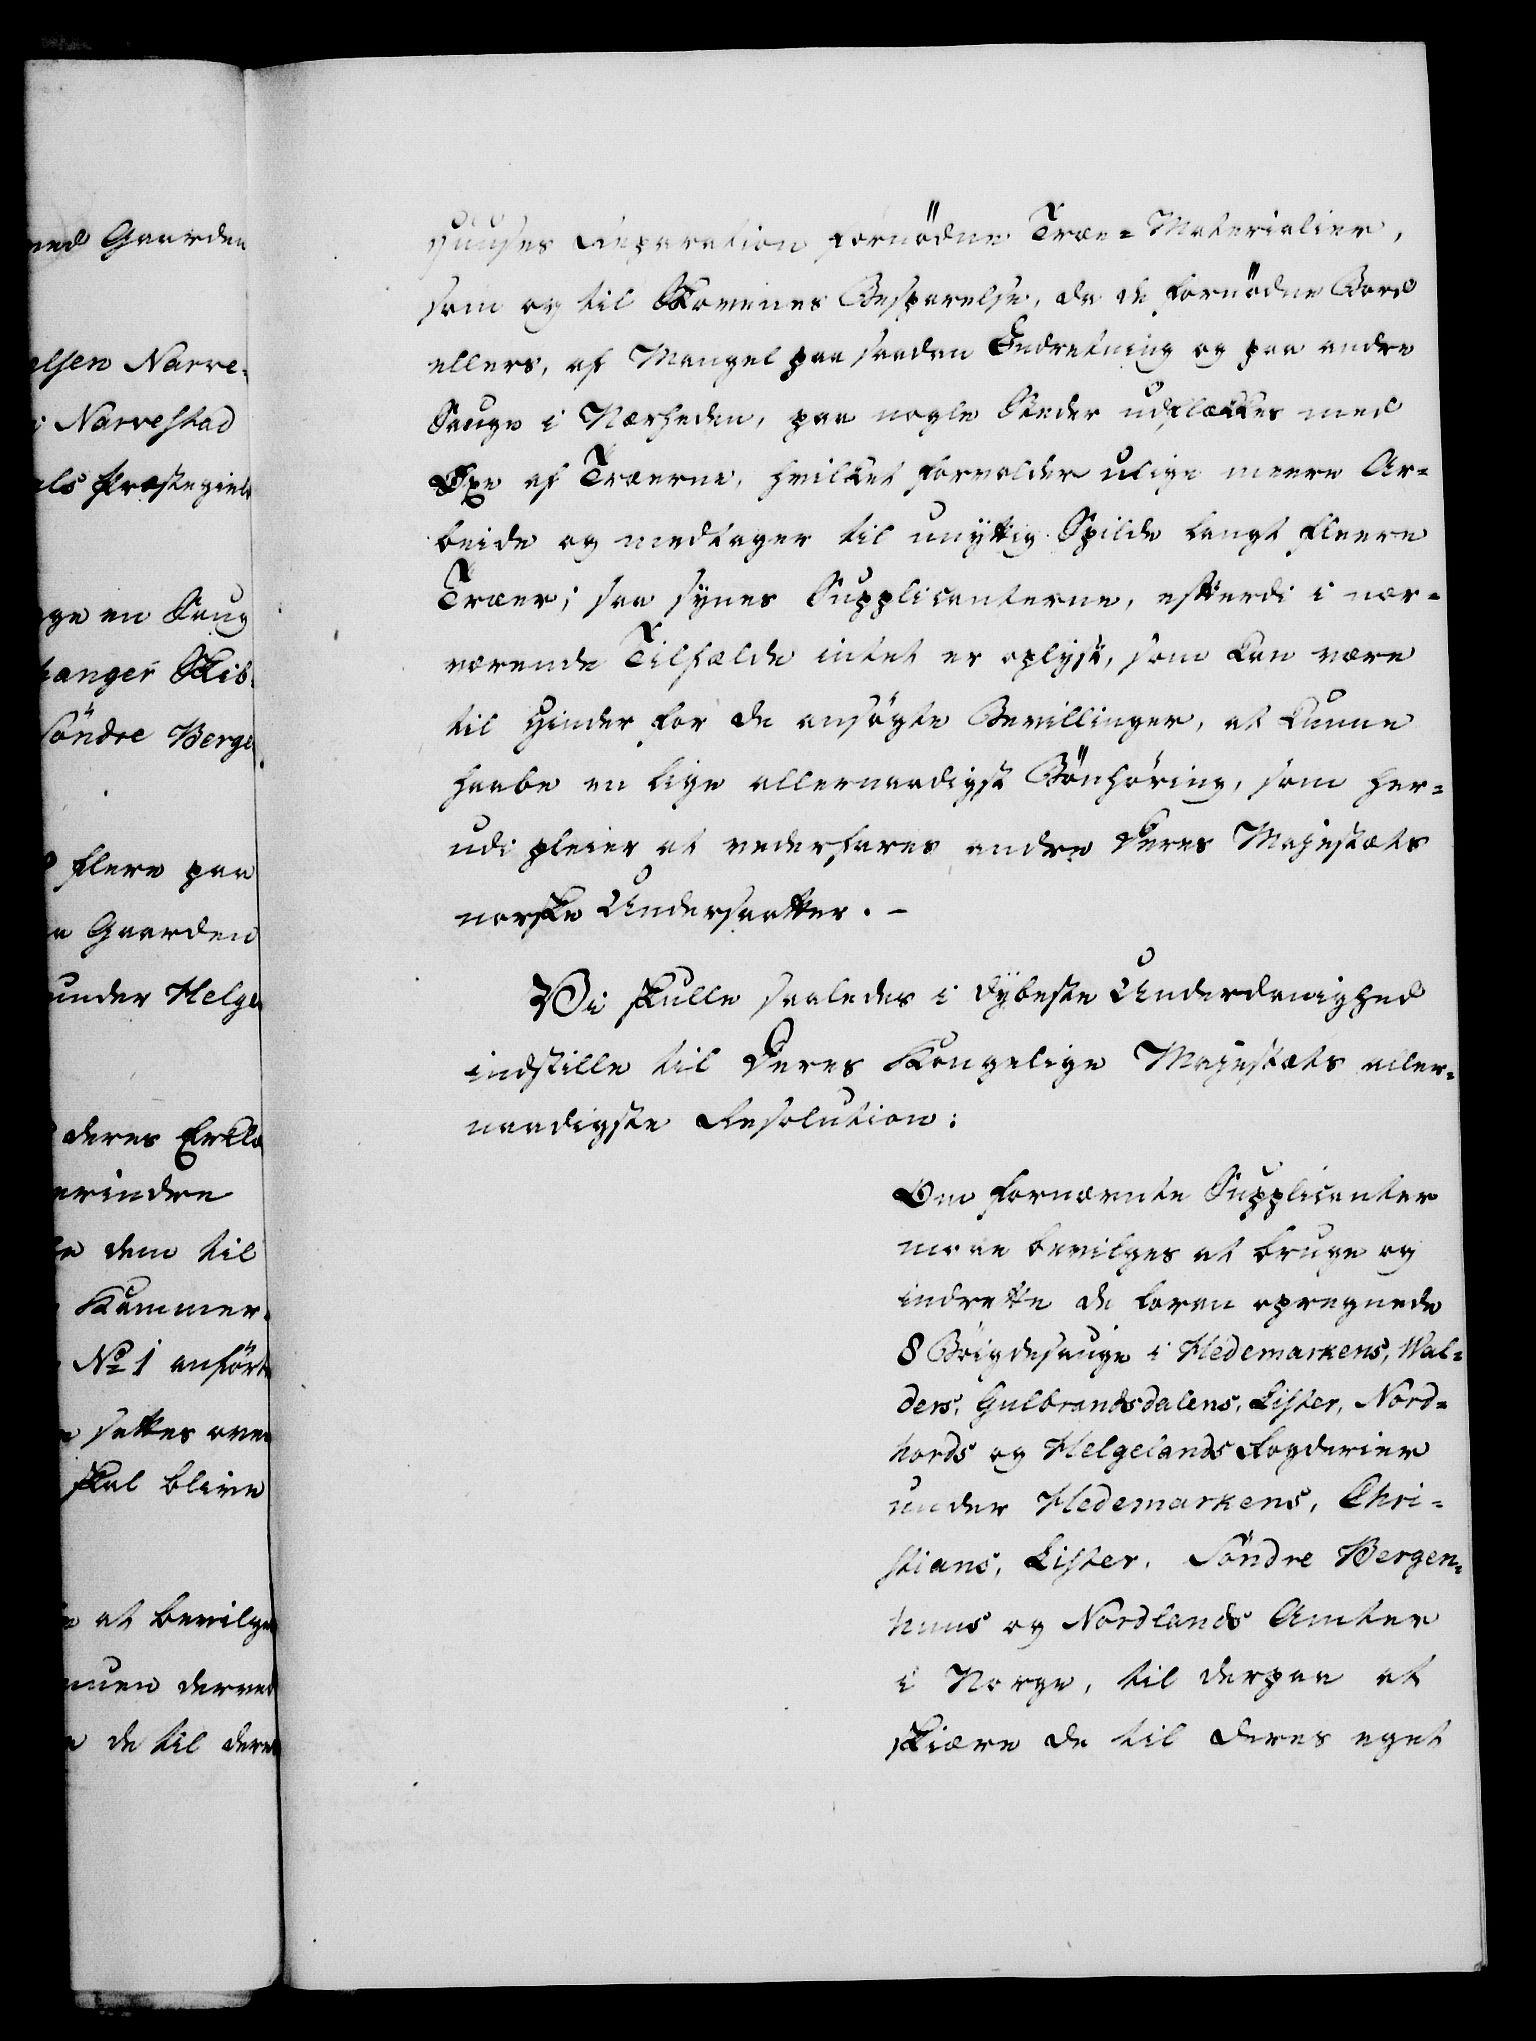 ned Gaarden
elsen Narve-
i Narvestad
als Præstegield
ge en Saug
hanger Skib-
Söndre Berge
flere paa
a Gaarden
under Helge
deres Erklæ
erindre
dem til
Kammer-
No 1 anförte
sættes over
skal blive
at bevilge
nuen derved
de til deres
Huuses Reparation fornödne Træe-Materialier,
som og til Skovenes Besparelse, da de fornödne Bord
ellers, af Mangel paa saadan Indretning og paa andre
Sauge i Nærheden, paa nogle Steder udflækkes med
Öxe af Træerne, hvilket forvolder ulige meere Ar-
beide og medtager til unyttig Spilde langt fleere
Træer; saa synes Supplicanterne, efterdi i nær-
værende Tilfælde intet er oplyst, som kan være
til Hinder for de ansögte Bevillinger, at kunne
haabe en lige allernaadigst Bönhöring, som her-
udi pleier at vederfares andre Deres Majestæts
norske Undersaatter. -
Vi skulle saaledes i dybeste Underdanighed
indstille til Deres Kongelige Majestæts aller-
naadigste Resolution:
Om fornævnte Supplicanter
maae bevilges at bruge og
indrette de foran opregnede
8 Böigdesauge i Hedemarkens, Wal-
ders, Gulbrandsdalens, Lister, Nord-
hords og Helgelands Fogderier
under Hedemarkens, Chri-
stians, Lister, Söndre Bergen-
huus og Nordlands Amter
i Norge, til derpaa at
skiære de til deres eget